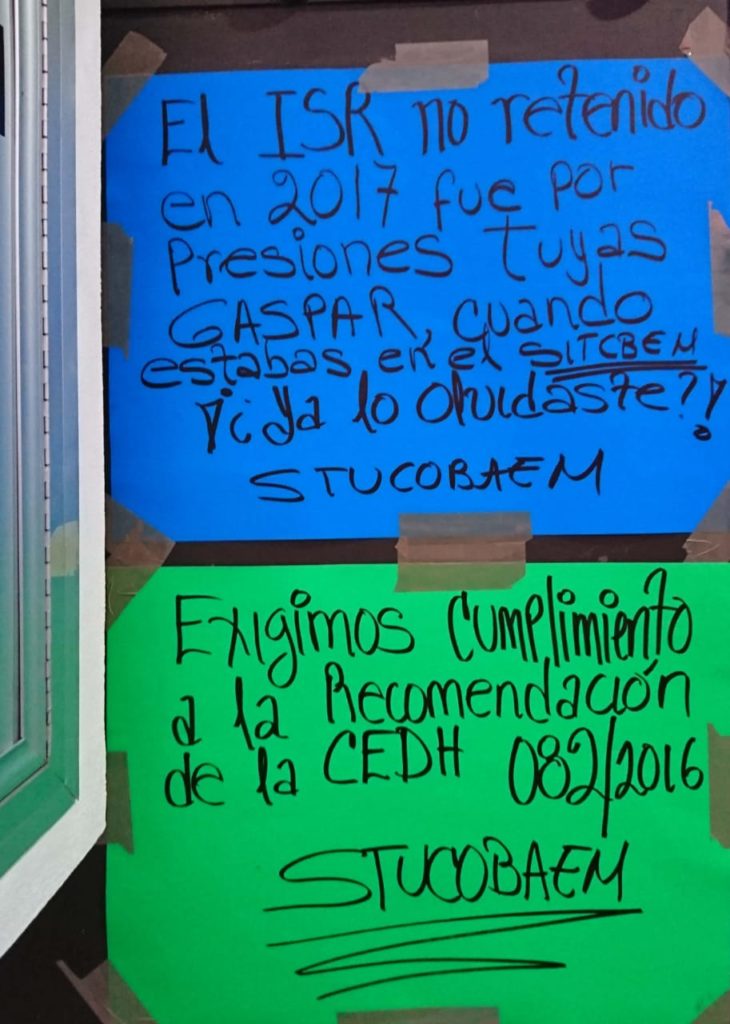 El ISR no retenido
en 2017 fue por
Presiones tuyas
GASPAR, cuando
estabas en el SITCBEM
¡¿Ya lo olvidaste?!
STUCOBAEM
Exigimos cumplimiento
a la Recomendación
de la CEDH 082/2016
STUCOBAEM